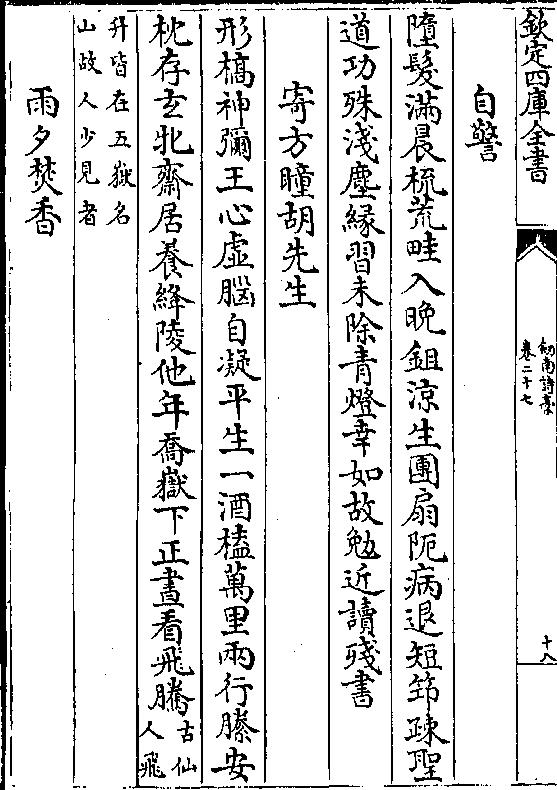 欽定四庫全書
劒南詩藁
卷二十七
十八
自警
墮髮滿晨梳荒畦入晚鉏涼生團扇阨病退短筇疎聖
道功殊淺塵緣習未除青燈幸如故勉近讀殘書
寄方瞳胡先生
形槁神彌王心虛腦自凝平生一酒榼萬里兩行縢安
枕存玄牝齋居養絳陵他年喬嶽下正晝看飛騰古仙人飛
升皆在五嶽名
山故人少見者
雨夕焚香